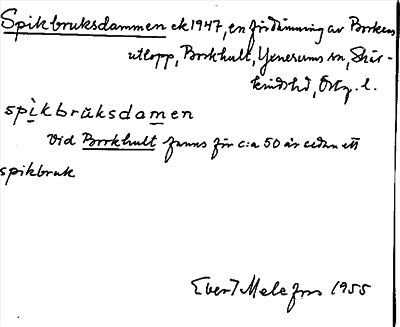 Spikbruksdammen ek 1947, en fördämning av Borkens
utlopp, Borkhult, Yxnerums sn, Skär-
kinds hd, Östg. l.
spikbruksdamen
Vid Borkhult fanns för c:a 50 år sedan ett
spikbruk
Evert Melefors 1955